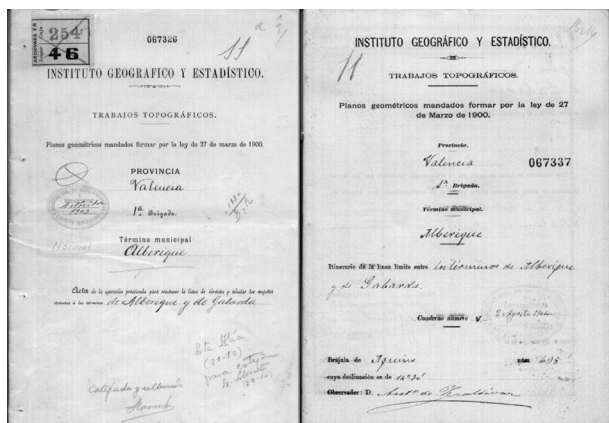 ARCHIVADA EN
254
46
067326
11
INSTITUTO GEOGRAFICO Y ESTADÍSTICO.
TRABAJOS TOPOGRÁFICOS.
Planos geométricos mandados formar por la ley de 27 de marzo de 1900.
PROVINCIA
Valencia
1ª Brigada.
Término municipal
Alberique
Acta de la operación practicada para reconocer la línea de término y señalar los mojones
comunes á los términos de Alberique y de Gabarda
(29-10)
para
(29-10)
11
INSTITUTO GEOGRÁFICO Y ESTADÍSTICO.
TRABAJOS TOPOGRÁFICOS.
Planos geométricos mandados formar por la ley de 27
de Marzo de 1900.
Provincia.
Valencia
067337
1ª Brigada.
Término municipal.
Alberique
Itinerario de la línea límite entre los términos de Alberique
y de Gabarda.
Cuaderno número V
2 Agosto
Brújula de núm. 698
cuya declinación es de 14º35'
Observador: D. Antº de Zaldívar